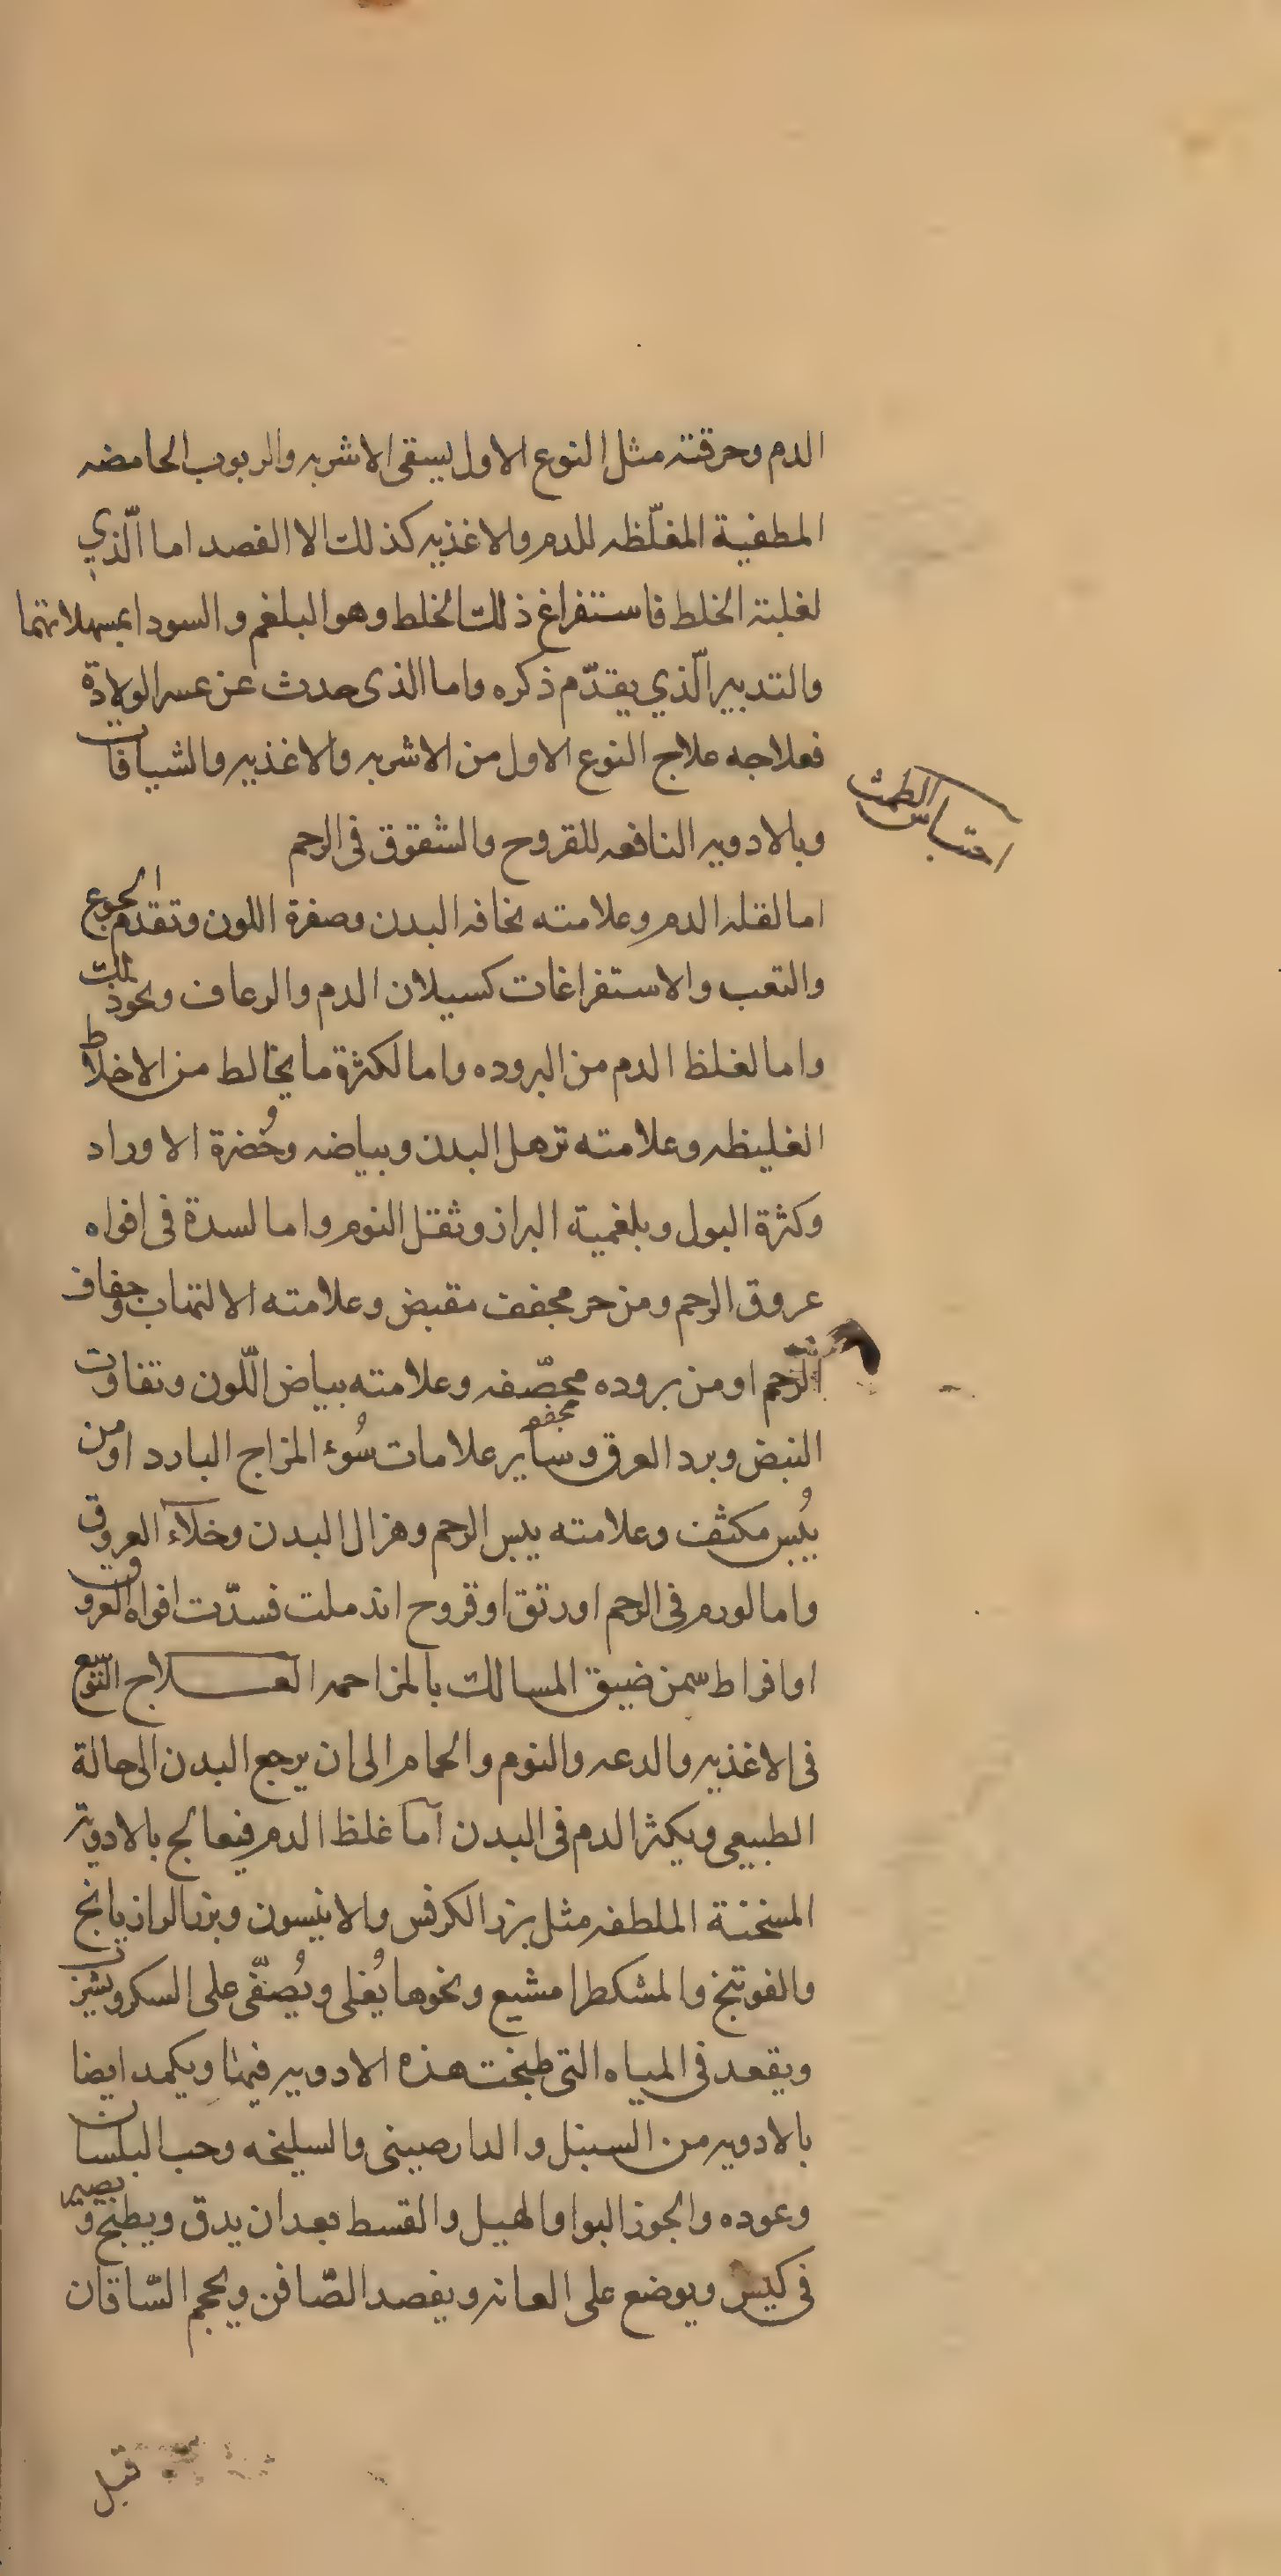 الدم وحرقته مثل النوع الاول يسقى الاشربه والربوب الحامضه
المطفية المغلّظه للدم والاغذيه كذلك الا الفصد اما الّذي
لغلبة الخلط فاستفراغ ذلك الخلط وهو البلغم والسودا بمسهلاتهما
والتدبير الّذي يقدّم ذكره واما الذى حدث عن عسر الولادة
فعلاجه علاج النوع الاول من الاشربه والاغذيه والشيافات
احتباس الطمث
وبالادويه النافعه للقروح والشقوق فى الرحم
اما لقله الدم وعلامته نحافه البدن وصفرة اللون وتقدم الجوع
والتعب والاستفراغات كسيلان الدم والرعاف ونحو ذلك
واما لغلظ الدم من البروده واما لكثرة ما يخالط من الاخلاط
الغليظه وعلامته ترهل البدن وبياضه وخُضرة الاوراد
وكثرة البول وبلغمية البراز وثقل النوم واما لسدة فى افواه
عروق الرحم ومن حر مجفف مقبض وعلامته الالتهاب وجفاف
الرّحم او من بروده محصّفه وعلامته بياض اللّون وتفاوت
النبض وبرد العرق وساير علامات سُوء المزاج البارد او من
يُبس مكثف وعلامته يبس الرحم وهزال البدن وخلآء العروق
واما لورم فى الرحم او رتق او قروح اندملت فسدّت افواه العروق
او افراط سمن ضيق المسالك بالمزاحمه العلاج التوسع
فى الاغذيه والدعه والنوم والحمام الى ان يرجع البدن الى حالة
الطبيعى ويكثر الدم فى البدن آما غلظ الدم فيعالج بالادوية
المسخنة الملطفه مثل بزر الكرفس والانيسون وبزر الرازيانج
والفوتنج والمشكطرا مشيع ونحوها يُغلى ويُصفّى على السكر ويشرب
ويقعد فى المياه التى طبخت هذه الادويه فيها ويكمد ايضا
بالادويه من السنبل والدارصينى والسليخه وحب البلسان
وعوده والجوز البوا والهيل والقسط بعد ان يدق ويطبخ ويصير
فى كيس ويوضع على العانه ويفصد الصّافن ويحجم السّاقان
قبل